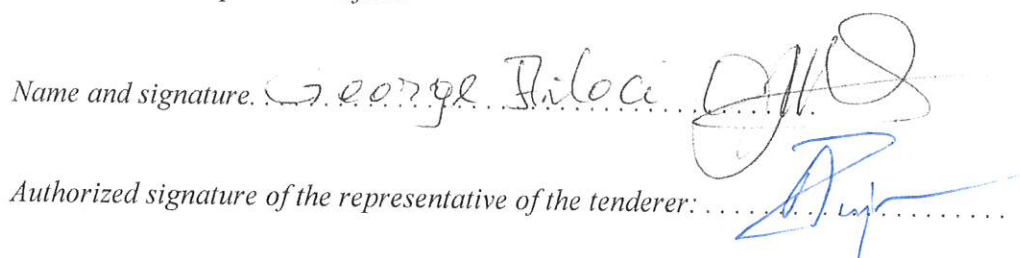 Name and signature. George
Authorized signature of the representative of the tenderer: